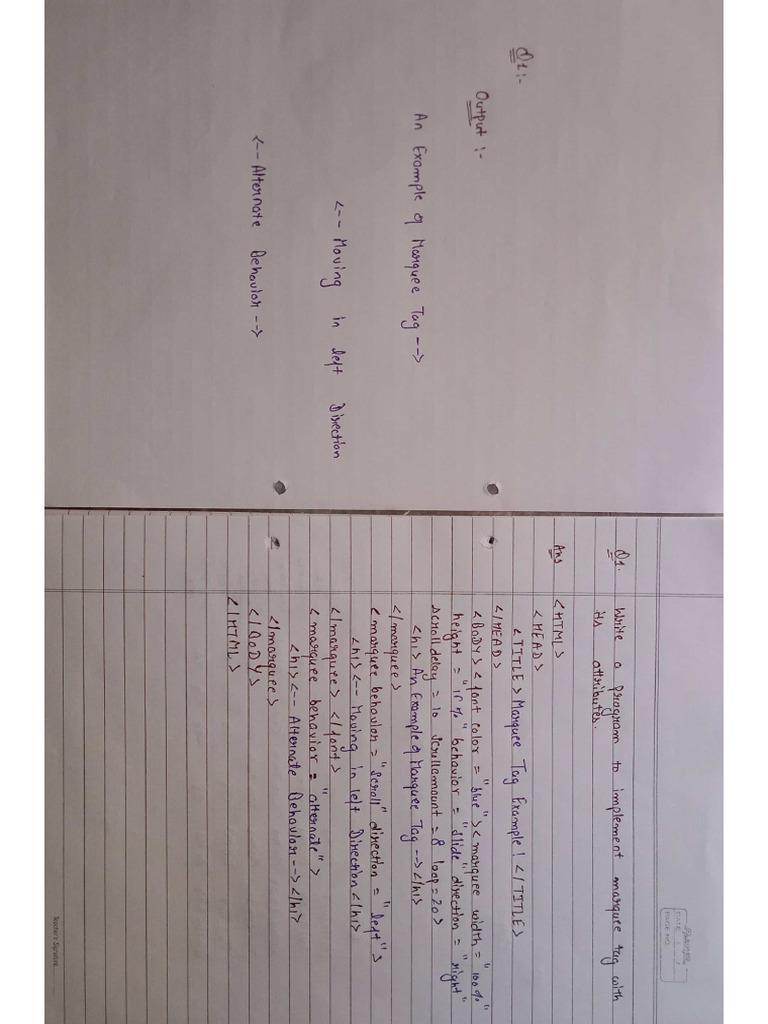 Q1:-
Output :-
An Example of Marquee Tag -->
<-- Moving in left Direction
<-- Alternate Behavior -->
DATE
PAGE NO.
Q1. Write a program to implement marquee tag with
its attributes.
Ans <HTML>
<HEAD>
<TITLE> Marquee Tag Example! </TITLE>
</HEAD>
<BODY> <font color = "blue"> <marquee width = "100%"
height = "15%" behavior = "slide" direction = "right"
scrolldelay = 10 scrollamount = 8 loop = 20>
<h1> An Example of Marquee Tag --> </h1>
</marquee>
<marquee behavior = "scroll" direction = "left">
<h1> <-- Moving in left Direction </h1>
</marquee> </font>
<marquee behavior = "alternate">
<h1> <-- Alternate Behavior --> </h1>
</marquee>
</BODY>
</HTML>
Teacher's Signature